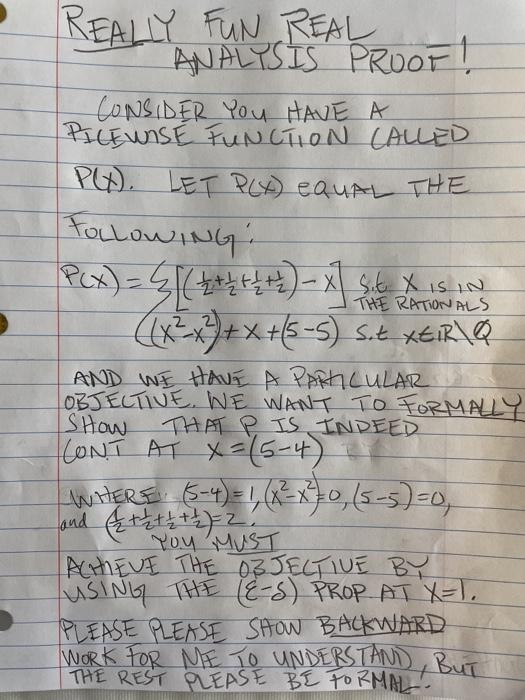 REALLY FUN REAL
ANALYSIS PROOF!
CONSIDER YOU HAVE A
PICEWISE FUNCTION CALLED
P(X). LET P(X) EQUAL THE
FOLLOWING:
P(X) = { [(1/2+1/2+1/2+1/2) - X] S.t X IS IN
THE RATIONALS
((x²-x²)+x+(5-5) S.t X∈ℝ\Q
AND WE HAVE A PARTICULAR
OBJECTIVE. WE WANT TO FORMALLY
SHOW THAT P IS INDEED
CONT AT X=(5-4)
WHERE: (5-4)=1, (x²-x²)=0, (5-5)=0,
and (1/2+1/2+1/2+1/2)=2.
YOU MUST
ACHIEVE THE OBJECTIVE BY
USING THE (ε-δ) PROP AT X=1.
PLEASE PLEASE SHOW BACKWARD
WORK FOR ME TO UNDERSTAND, BUT
THE REST PLEASE BE FORMAL.